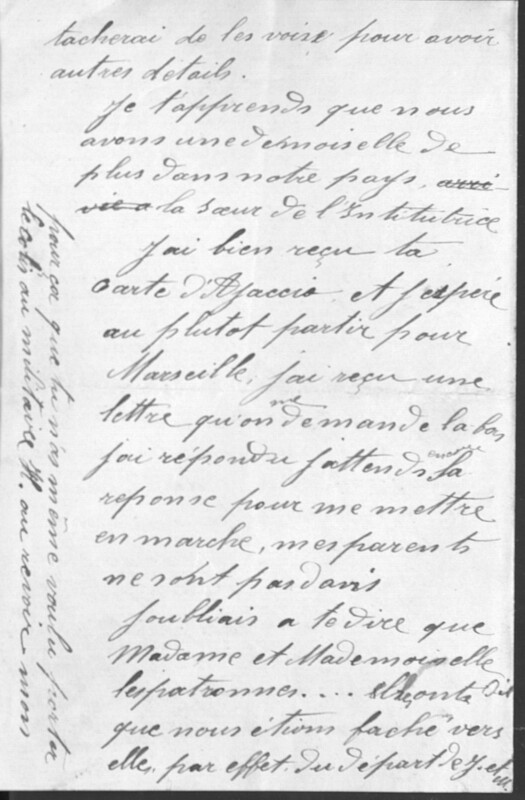 tacherai de les voire pour avoir
autres détails.
Je t'apprends que nous
avons une demoiselle de
plus dans notre pays, arri-
vée a la sœur de l'Institutrice
J'ai bien reçu ta
Carte d'Ajaccio et J'espére
au plutot partir pour
Marseille, j'ai reçu une
lettre qu'on me demande la bas
j'ai répondu j'attends encore sa
reponse pour me mettre
en marche, mes parents
ne sont pas davis
J'oubliais a te dire que
Madame et Mademoiselle
les patronnes.... elles ont dit
que nous étions faché vers
elle, par effet du départ de J. et M.
pour ça que tu n'as même voulu porter
le colis au militaire M. au revoir mon